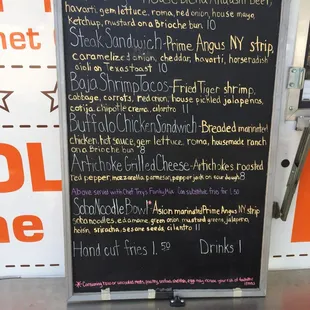 House Blend Angus Beef,
havarti, gem lettuce, roma, red onion, house mayo,
ketchup, mustard on a Brioche bun 10
Steak Sandwich - Prime Angus NY strip,
caramelized onion, cheddar, havarti, horseradish
aioli on Texas toast 10
Baja Shrimp Tacos - Fried Tiger shrimp,
cabbage, carrots, red onion, house pickled jalapenos,
cotija, chipotle crema, cilantro 11
Buffalo Chicken Sandwich - Breaded marinated
chicken, hot sauce, gem lettuce, roma, housemade ranch
on a brioche bun 8
Artichoke Grilled Cheese - Artichokes roasted
red pepper, mozzarella, parmesan, pepper jack on sour dough 8
Above served with Chef Troy's Funky Mix. Can substitute fries for 1.50
Soba Noodle Bowl - Asian marinated Prime Angus NY strip
soba noodles, edamame, green onion, mustard greens, jalapeno,
hoisin, sriracha, sesame seeds, cilantro 11
Hand cut fries 1.50 Drinks 1
*Consuming raw or uncooked meats, poultry, seafood, and
OL
ne